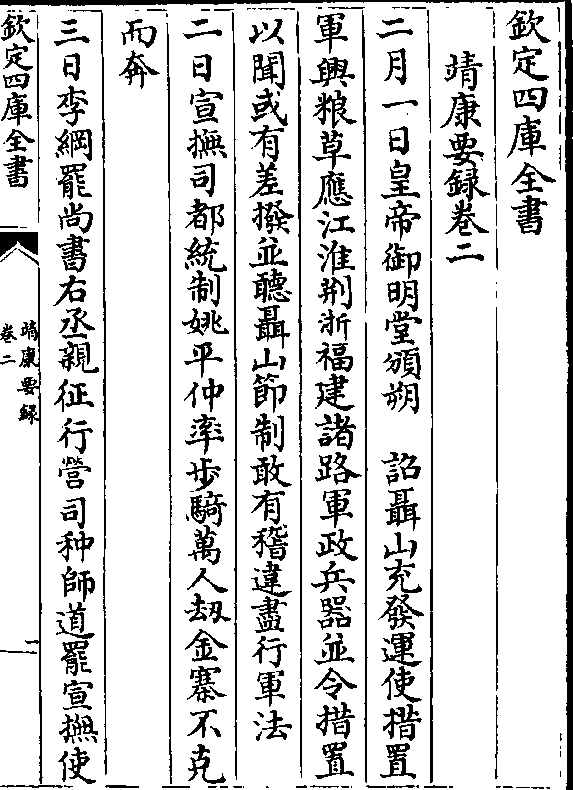 欽定四庫全書
靖康要録卷二
二月一日皇帝御明堂頒朔　詔聶山充發運使措置
軍興粮草應江淮荆浙福建諸路軍政兵器並令措置
以聞或有差撥並聽聶山節制敢有稽違盡行軍法
二日宣撫司都統制姚平仲率步騎萬人刼金寨不克
而奔
三日李綱罷尚書右丞親征行營司种師道罷宣撫使
欽定四庫全書
靖康要録
卷二
一